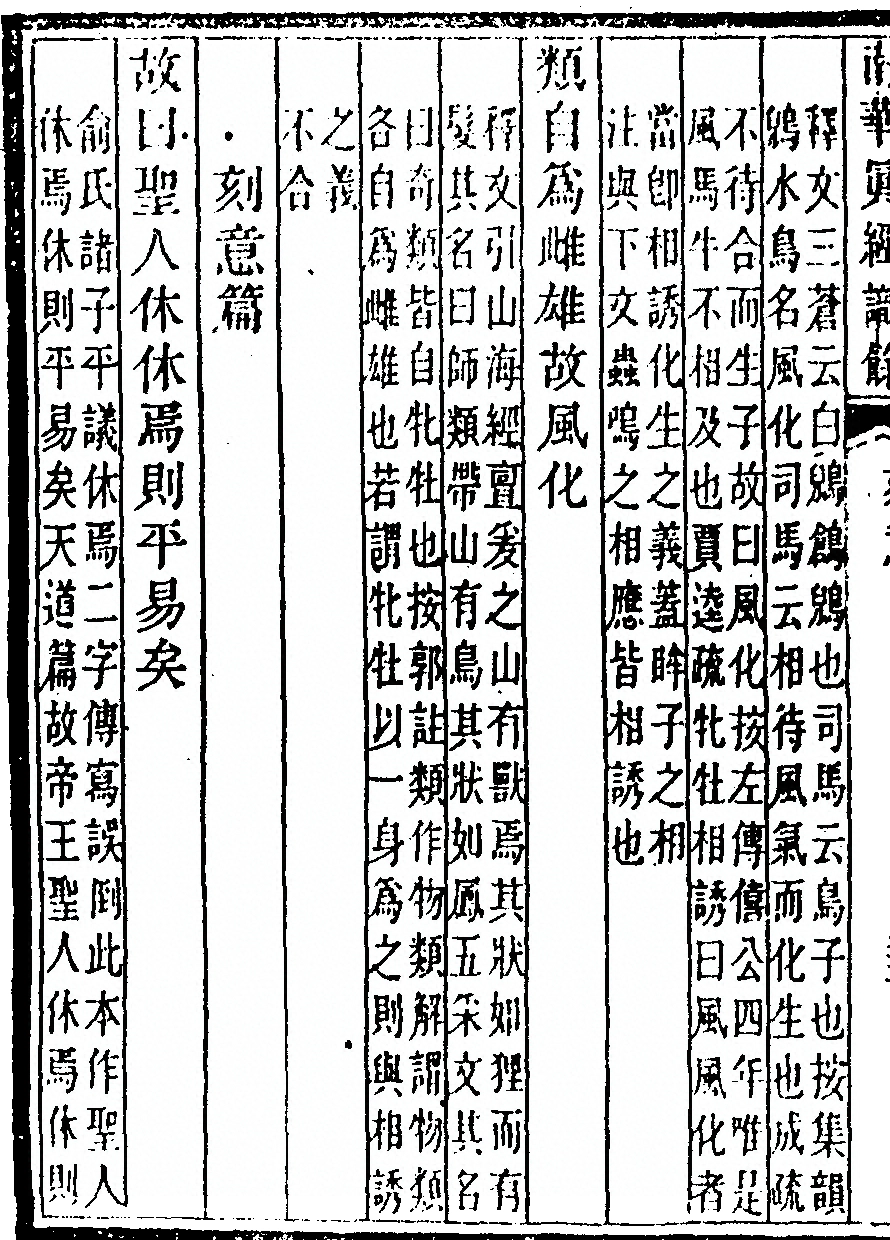 南華真經識餘
釋文三蒼云白鶂鶬鶂也司馬云鳥子也按集韻
鶂水鳥名風化司馬云相待風氣而化生也成疏
不待合而生子故曰風化按左傳僖公四年唯是
風馬牛不相及也賈逵疏牝牡相誘曰風風化者
當卽相誘化生之義蓋眸子之相
注與下文蟲鳴之相應皆相誘也
類自爲雌雄故風化
釋文引山海經亶爰之山有獸焉其狀如狸而有
髮其名曰師類帶山有鳥其狀如鳳五采文其名
曰奇類皆自牝牡也按郭註類作物類解謂物類
各自爲雌雄也若謂牝牡以一身爲之則與相誘
之義
不合
刻意篇
故曰聖人休休焉則平易矣
俞氏諸子平議休焉二字傳寫誤倒此本作聖人
休焉休則平易矣天道篇故帝王聖人休焉休則